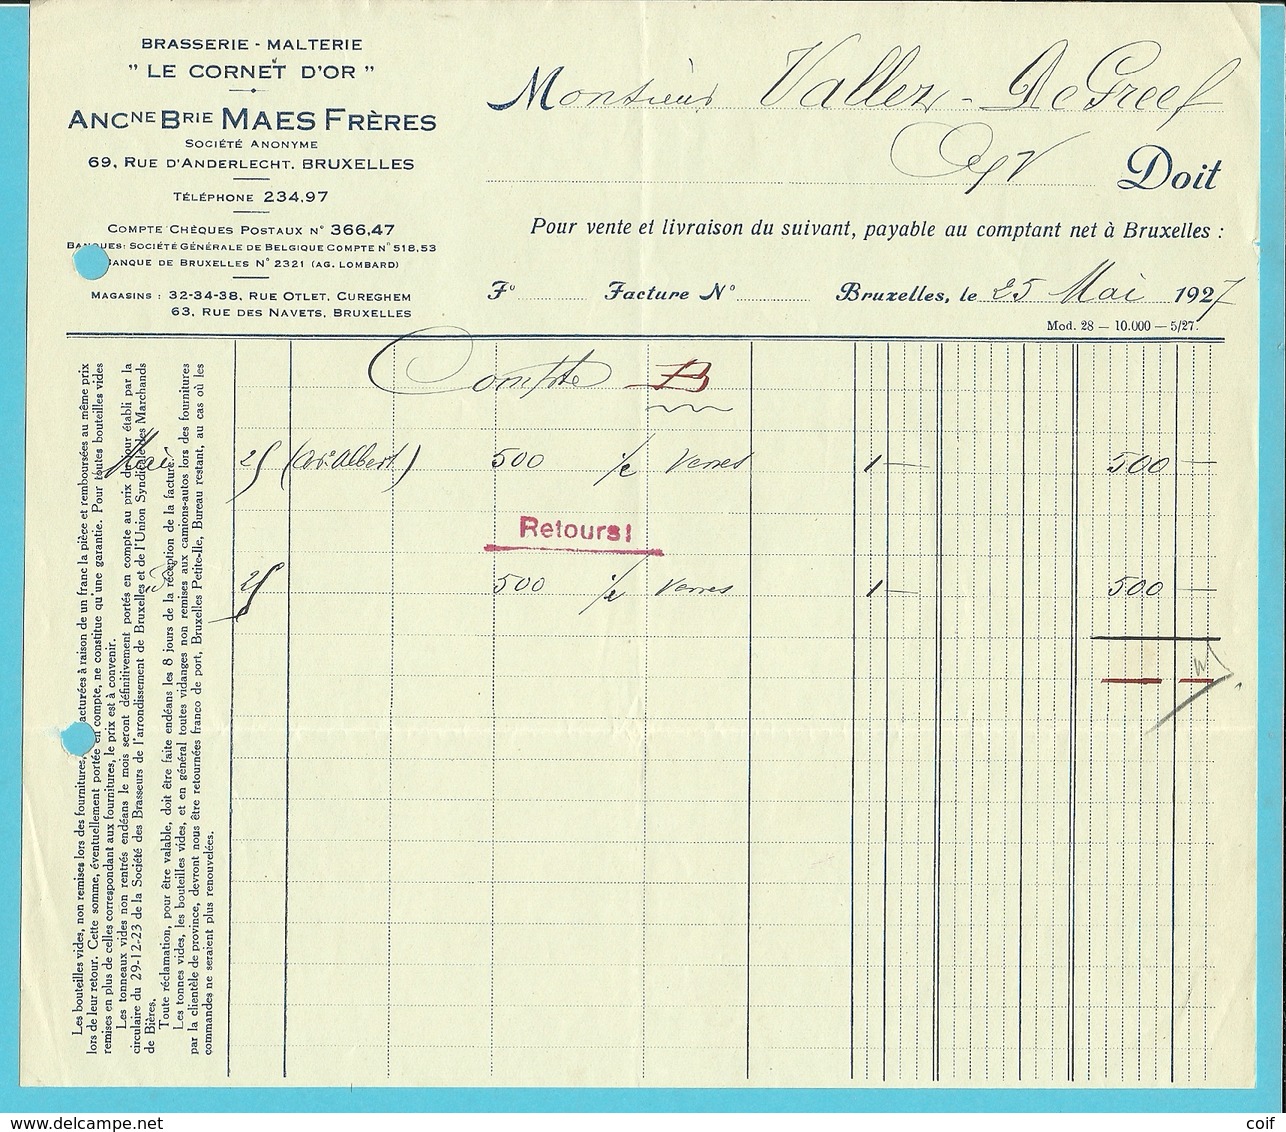 BRASSERIE - MALTERIE
" LE CORNET D'OR "
ANCNE BRIE MAES FRÈRES
SOCIÉTÉ ANONYME
69, RUE D'ANDERLECHT. BRUXELLES
TÉLÉPHONE 234.97
COMPTE CHÈQUES POSTAUX N° 366,47
BANQUES: SOCIÉTÉ GÉNÉRALE DE BELGIQUE COMPTE N° 518.53
BANQUE DE BRUXELLES N° 2321 (AG. LOMBARD)
MAGASINS : 32-34-38, RUE OTLET, CUREGHEM
63, RUE DES NAVETS, BRUXELLES
Monsieur Vallez - De Greef
Doit
Pour vente et livraison du suivant, payable au comptant net à Bruxelles :
F° Facture N° Bruxelles, le 25 Mai 1927
Mod. 28 — 10.000 — 5/27.
Compte B
Mai 25 Albert) 500 Verres 1 — 500 —
Retours!
25 500 Verres 1 — 500 —
Les bouteilles vides, non remises lors des fournitures, facturées à raison de un franc la pièce et remboursées au même prix
lors de leur retour. Cette somme, éventuellement portée en compte, ne constitue qu'une garantie. Pour toutes bouteilles vides
remises en plus de celles correspondant aux fournitures, le prix est à convenir.
Les tonneaux vides non rentrés endéans le mois seront définitivement portés en compte au prix du jour établi par la
circulaire du 29-12-23 de la Société des Brasseurs de l'arrondissement de Bruxelles et de l'Union Syndicale des Marchands
de Bières.
Toute réclamation, pour être valable, doit être faite endéans les 8 jours de la réception de la facture.
Les tonnes vides, les bouteilles vides, et en général toutes vidanges non remises aux camions-autos lors des fournitures
par la clientèle de province, devront nous être retournées franco de port, Bruxelles Petite-Ile, Bureau restant, au cas où les
commandes ne seraient plus renouvelées.
www.delcampe.net
coif